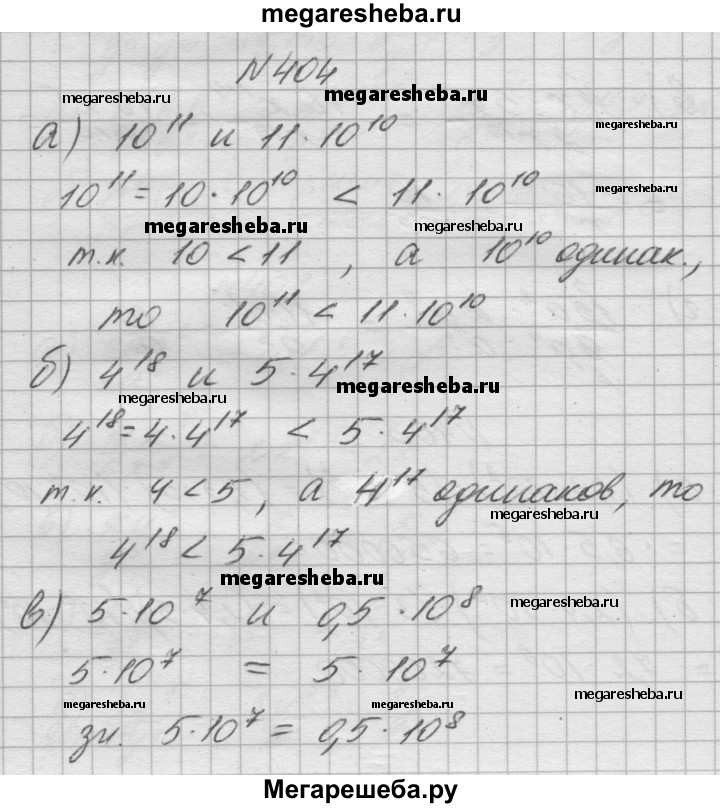 megaresheba.ru
N 404
megaresheba.ru
megaresheba.ru
а) 10¹¹ и 11·10¹⁰
megaresheba.ru
10¹¹ = 10·10¹⁰ < 11·10¹⁰
megaresheba.ru
megaresheba.ru
megaresheba.ru
т.к. 10 < 11 , а 10¹⁰ одинак.,
то 10¹¹ < 11·10¹⁰
б) 4¹⁸ и 5·4¹⁷
megaresheba.ru
megaresheba.ru
4¹⁸ = 4·4¹⁷ < 5·4¹⁷
т.к. 4 < 5 , а 4¹⁷ одинаков, то
megaresheba.ru
4¹⁸ < 5·4¹⁷
megaresheba.ru
в) 5·10⁷ и 0,5·10⁸
megaresheba.ru
5·10⁷ = 5·10⁷
megaresheba.ru
megaresheba.ru
megaresheba.ru
зн. 5·10⁷ = 0,5·10⁸
Мегарешеба.ру